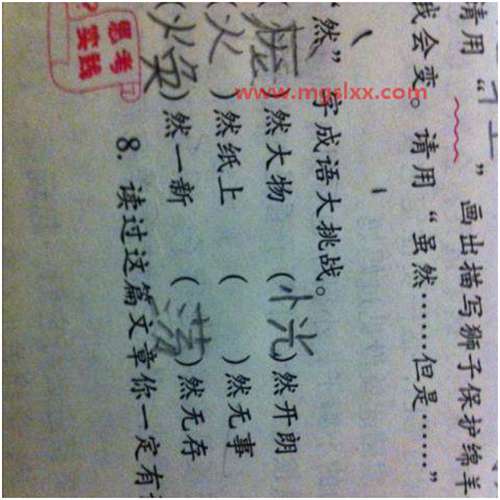 请用“”画出描写狮子保护绵羊
我会变。请用“虽然……但是……”
“然”字成语大挑战。
( )然大物 (恍)然开朗
(火)然纸上 ( )然无事
(焕)然一新 (荡)然无存
8. 读过这篇文章你一定有
思考
实践
www.mgslxx.com